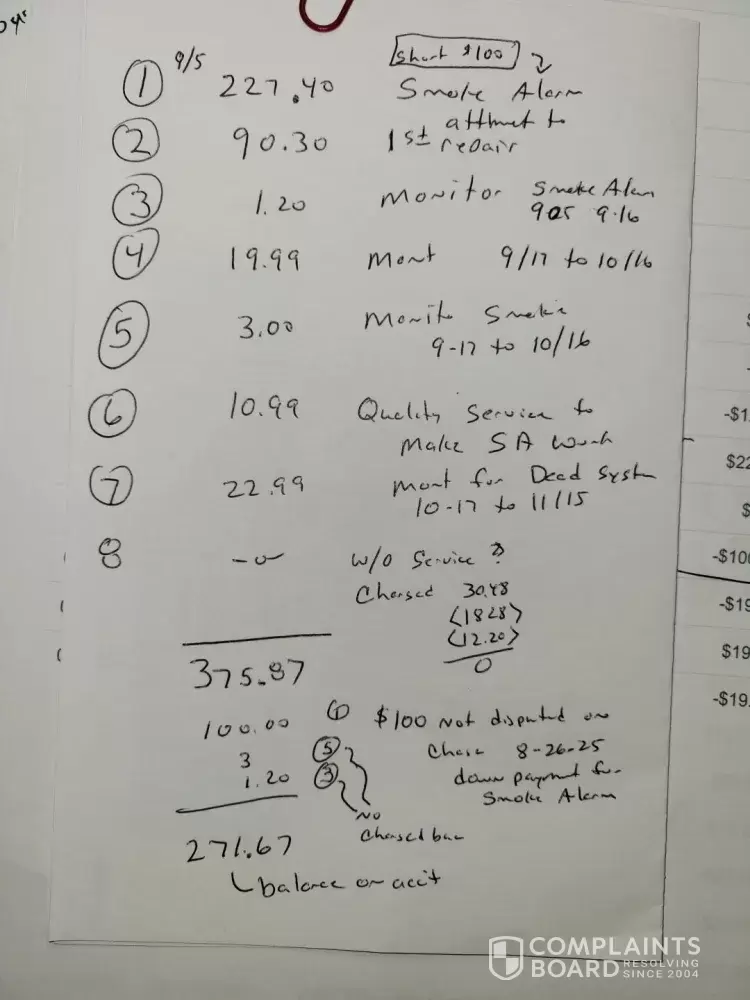 short $100
9/5
1 227.40 Smoke Alarm
2 90.30 1st attmet to repair
3 1.20 Monitor Smoke Alam
905 9.16
4 19.99 Mont 9/17 to 10/16
5 3.00 Monito Smoke
9-17 to 10/16
6 10.99 Quality Service to
Make SA work
7 22.99 Mont for Dead System
10-17 to 11/15
8 -0- W/O Service ?
Charged 30.48
<18.28>
<12.20>
0
375.87
100.00 1 $100 Not disputed on
3 5 Chase 8-26-25
1.20 3 down payment for
Smoke Alarm
No
Chased bac
271.67
balance on acct
-$1
$22
$
-$100
-$19
$19
-$19.
COMPLAINTS
BOARD RESOLVING
SINCE 2004